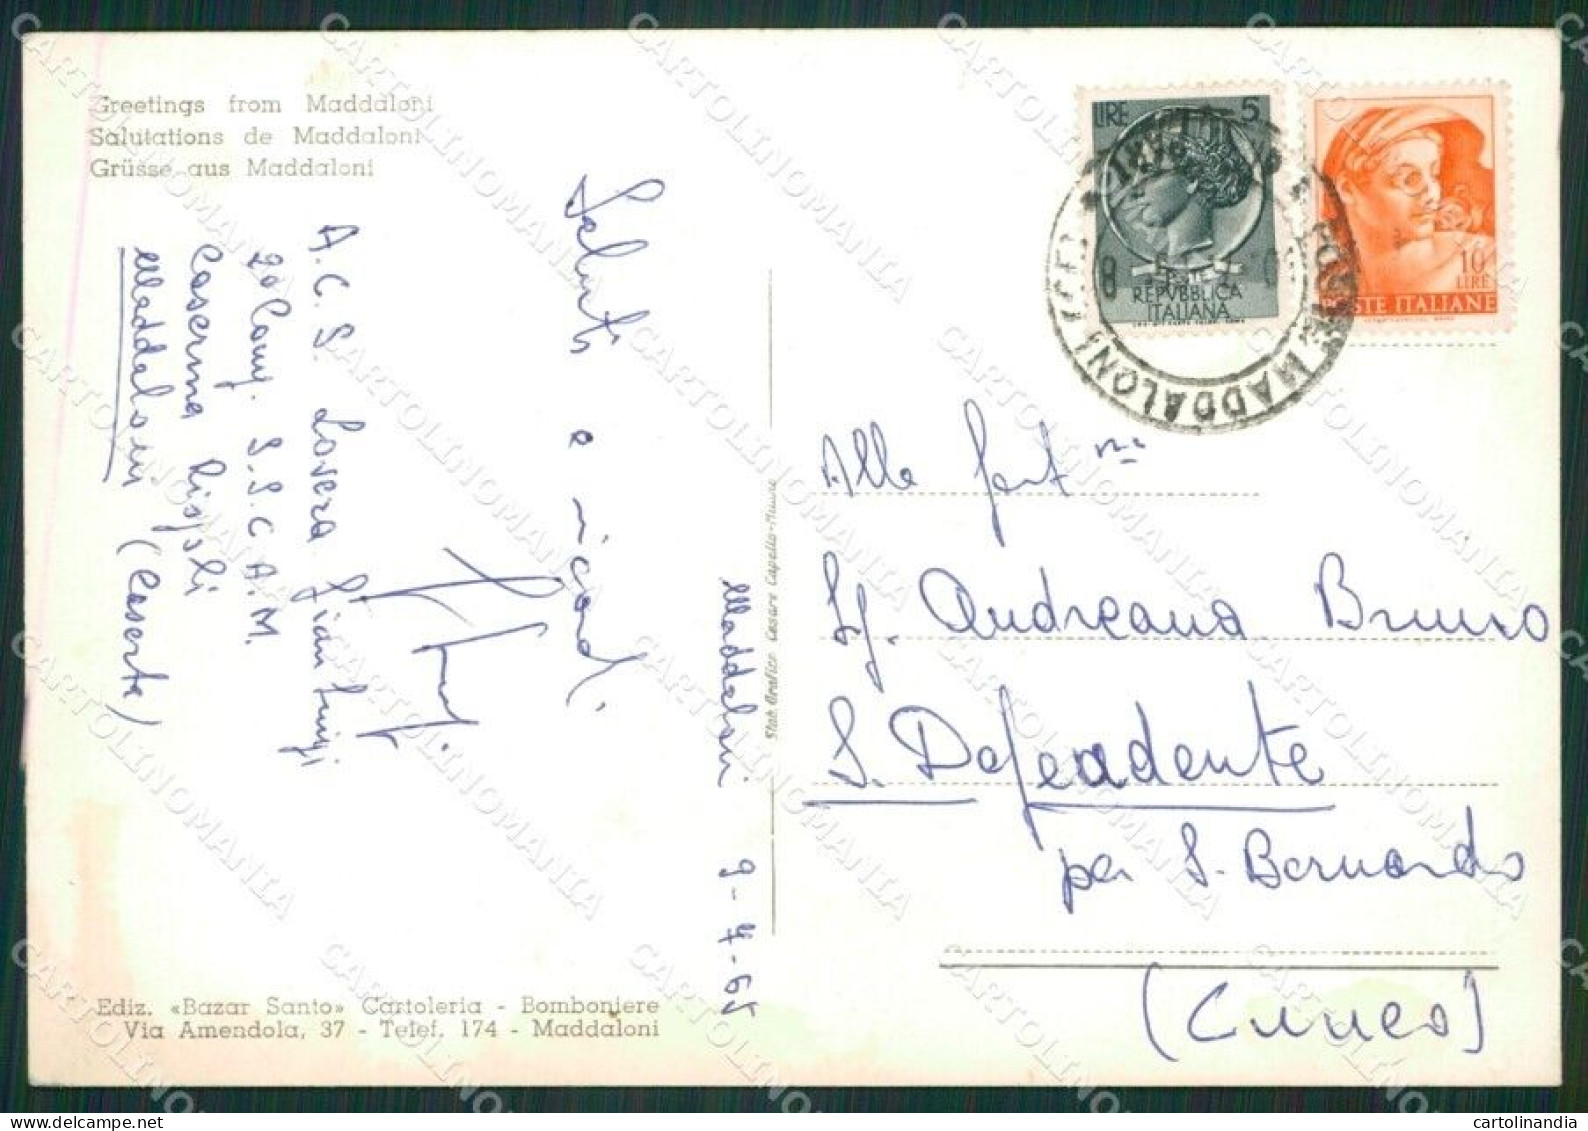 Greetings from Maddaloni
Salutations de Maddaloni
Grüsse aus Maddaloni
Saluti e ricordi
A.C.S. Lovera Gian Luigi
2a Comp. S.S.C.A.M.
Caserma Rispoli
Maddaloni (Caserta)
Maddaloni 9-4-65
Stab. Grafico Cesare Capello-Milano
Ediz. «Bazar Santo» Cartoleria - Bomboniere
Via Amendola, 37 - Telef. 174 - Maddaloni
LIRE 5
REPVBBLICA
ITALIANA
10
LIRE
POSTE ITALIANE
MADDALONI
Alla Gent ma
Sg. Andreana Bruno
S. Defendente
per S. Bernardo
(Cuneo)
CARTOLINOMANIA
cartolinandia